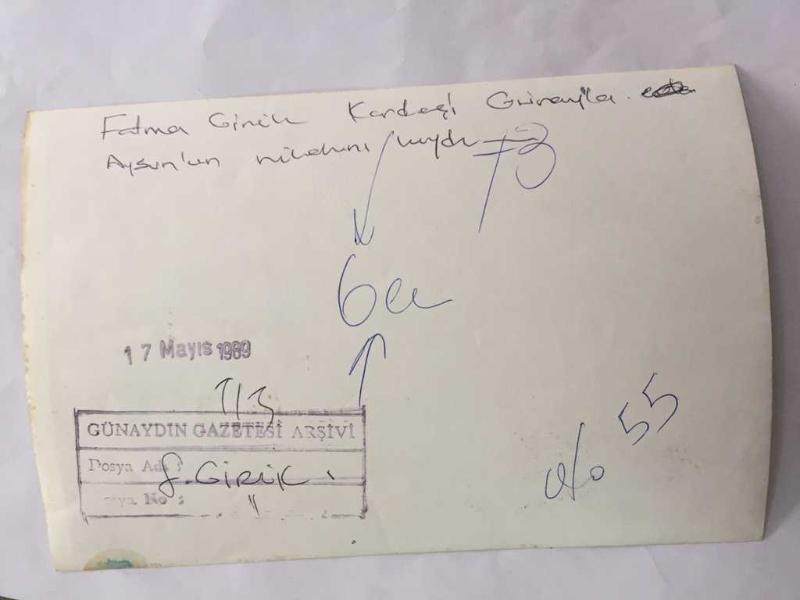 Fatma Girik Kardeşi Günayla
Aysun'un nikahını kıydı
73
6cu
17 Mayıs 1989
T/3
GÜNAYDIN GAZETESİ ARŞİVİ
Dosya Adı :
F. GİRİK
No :
%55